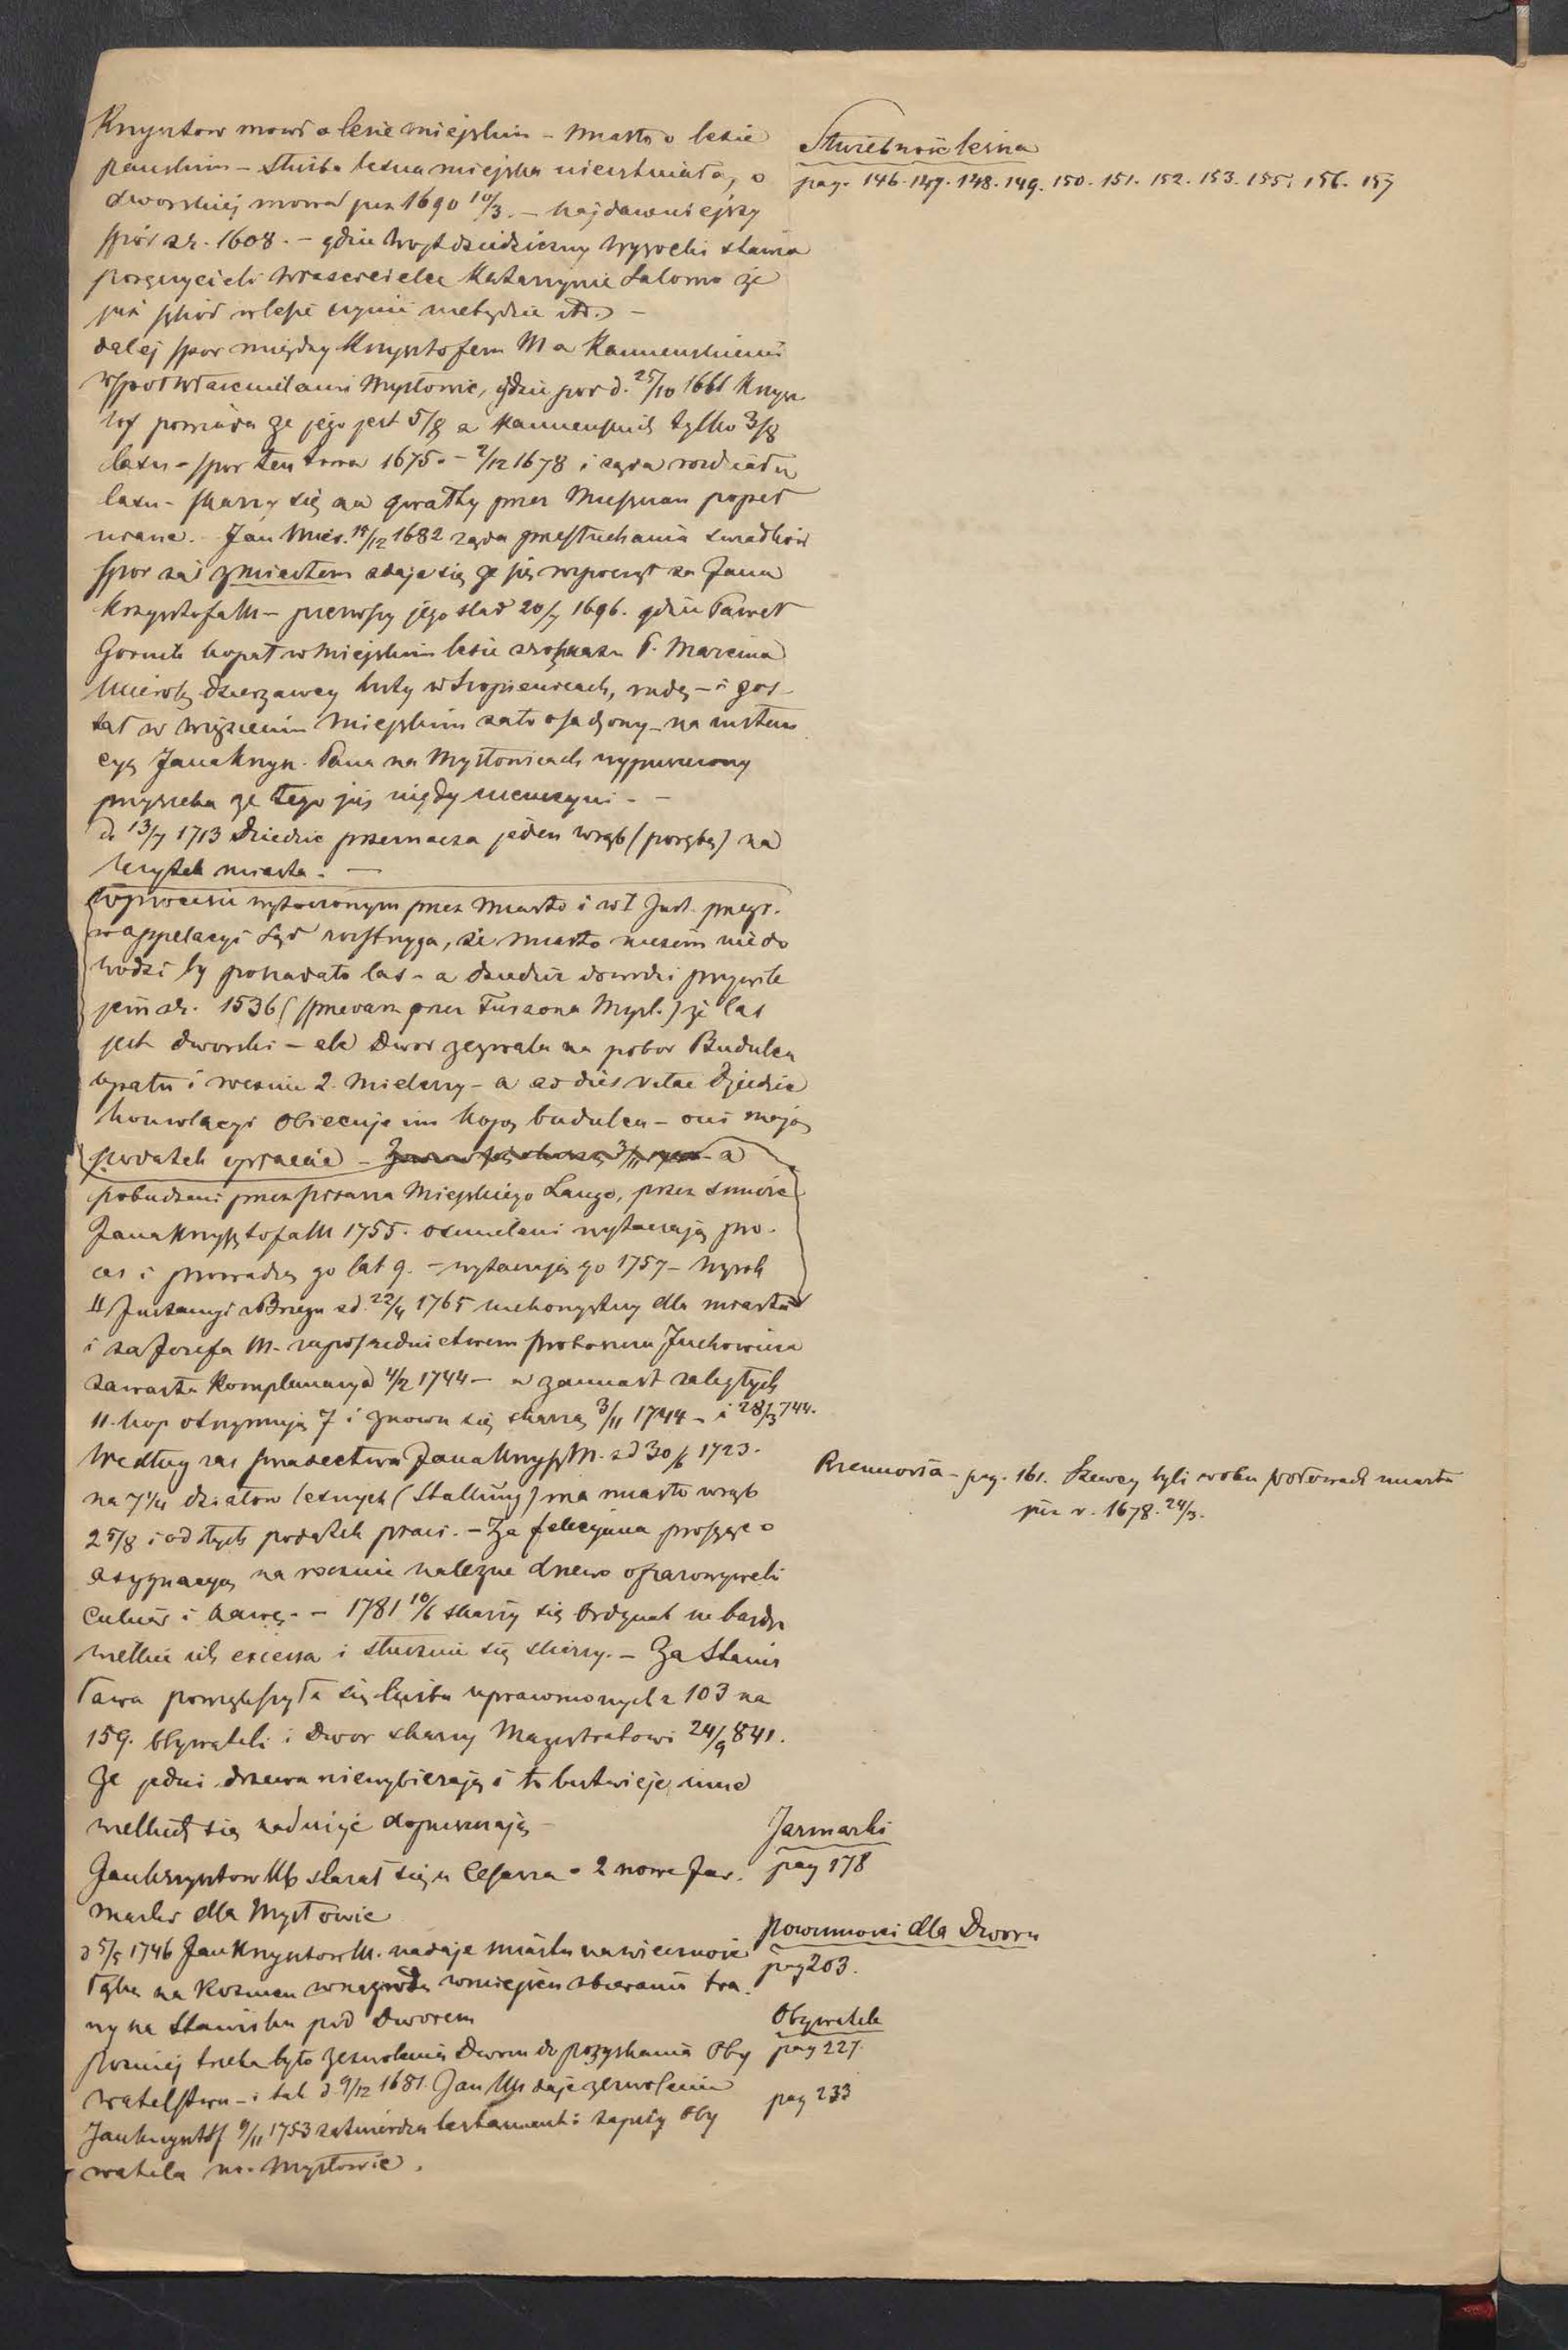 Krzysztow mowi o lesie miejskim – miasto o lesie
panskim – Służba leśna miejska nieistniała, o
dworskiej mowa już 1690 10/3. – najdawniejszy
spór z r. 1608. – gdzie Wojt dziedziczny Wysocki stawia
poręczycieli Właścicielce Katarzynie Salomo że
już szkód w lesie czynić niebędzie itd. –
dalej spor między Krzysztofem M a Kamienskiemi
współwłaścicielami Mysłowic, gdzie pod d. 25/10 1661 Krzysz
tof powiada że jego jest 5/8 a Kamienskich tylko 3/8
lasu – spor ten trwa 1675. – 2/12 1678 i żąda rozdziału
lasu – skarży się na gwałty przez Mieszczan popeł
niane. – Jan Mier. 14/12 1682 żąda przesłuchania swiadków
Spor zaś z miastem zdaje się że się rozpoczął za Jana
Krzysztofa M – pierwszy jego slad 20/7 1696. gdzie Paweł
Gornik kopał w Miejskim lesie z rozkazu P. Marcina
dzierzawcy huty w Szopienicach, rudę – i zos
tał w więzieniu Miejskim za to osadzony – na instan
cyą Jana Krzysz. Pana na Mysłowicach wypuszczony
przyrzeka że tego już nigdy nieuczyni. –
d. 13/7 1713 Dziedzic przeznacza jeden wrąb (porębę) na
użytek miasta. –
W procesie wytoczonym przez Miasto i w I Inst. przegr.
w appelacyi Sąd rozstrzyga, że miasto niczém niedo
wodzi by posiadało las – a dziedzic dowodzi przywile
jem z r. 1536 (sprzedarz przez Turzona Mysł.) że las
jest dworski – ale Dwor zezwala na pobor Budulcu
opału i rocznie 2. Mielerzy – a ad dies vitae Dziedzic
konwlacyi obiecuje im kopę budulcu – oni mają
podatek opłacać – a
pobudzeni przez pisarza Miejskiego Lange, przez smierć
Jana Krzysztofa M 1755. osmieleni wytaczają pro.
ces i prowadzą go lat 9. – wytaczają go 1757 – Wyrok
II Instancyi z Brzegu z d. 22/4 1765 niekorzystny dla miasta
i za Jozefa M. za pośrednictwem proboszcza Juchowicza
zawarta Komplanacya 4/2 1744 – a zamiast zaległych
11. kop otrzymują 7 i znowu się skarzą 3/11 1744 – i 28/3 744.
Według zas swiadectwa Jana Krzysz M. z d 30/6 1723.
na 7 1/4 działow lesnych (Stallung) ma miasto wrąb
2 5/8 i od tych podatek płaci. – Za Felicyana prosząc o
asygnacyą na rocznie należne drzewo ofiarowywali
Cukier i kawę. – 1781 10/6 skarży się Ordynat na bardzo
wielkie ich excessa i słusznie się skarży. – Za Stanis
ława powiększyła się liczba uprawnionych z 103 na
159. Obywateli i Dwor skarży Magistratowi 24/9 841.
że jedni drzewa niewybierają i to butwieje, inne
wielkich się nadużyć dopuszczają –
Jan Krzysztow Mb starał się u Cesarza o 2 nowe Jar.
marki dla Mysłowic
d 5/5 1746 Jan Krzysztow M. nadaje miastu na wieczność
łąkę na Rozmen w nagrodę w miejsce zbierania tra.
wy na Stawisku pod Dworem
pozniej trzeba było zezwolenia Dworu do pozyskania Oby
watelstwa – i tak d. 9/12 1681. Jan Mr daje zezwolenie
Jan Krzysztof 9/11 1753 zatwierdza testament i zapisy Oby
watela m. Mysłowic.
Służebność leśna
pag. 146. 147. 148. 149. 150. 151. 152. 153. 155. 156. 157
Rzemiosła – pag. 161. Szewcy byli w obu połowach miasta
już r. 1678. 24/3.
Jarmarki
pag 178
Powinności dla Dworu
pag 203.
Obywatele
pag 227.
pag 233